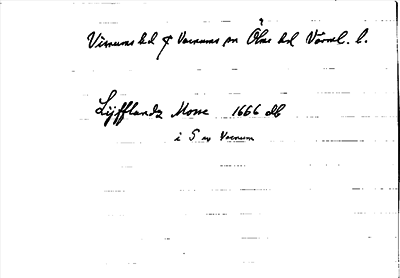 Visnums hd & Varnums sn Ölme hd Värml. l.
Lijfflandz Mosse 1666 db
i S av Varnum